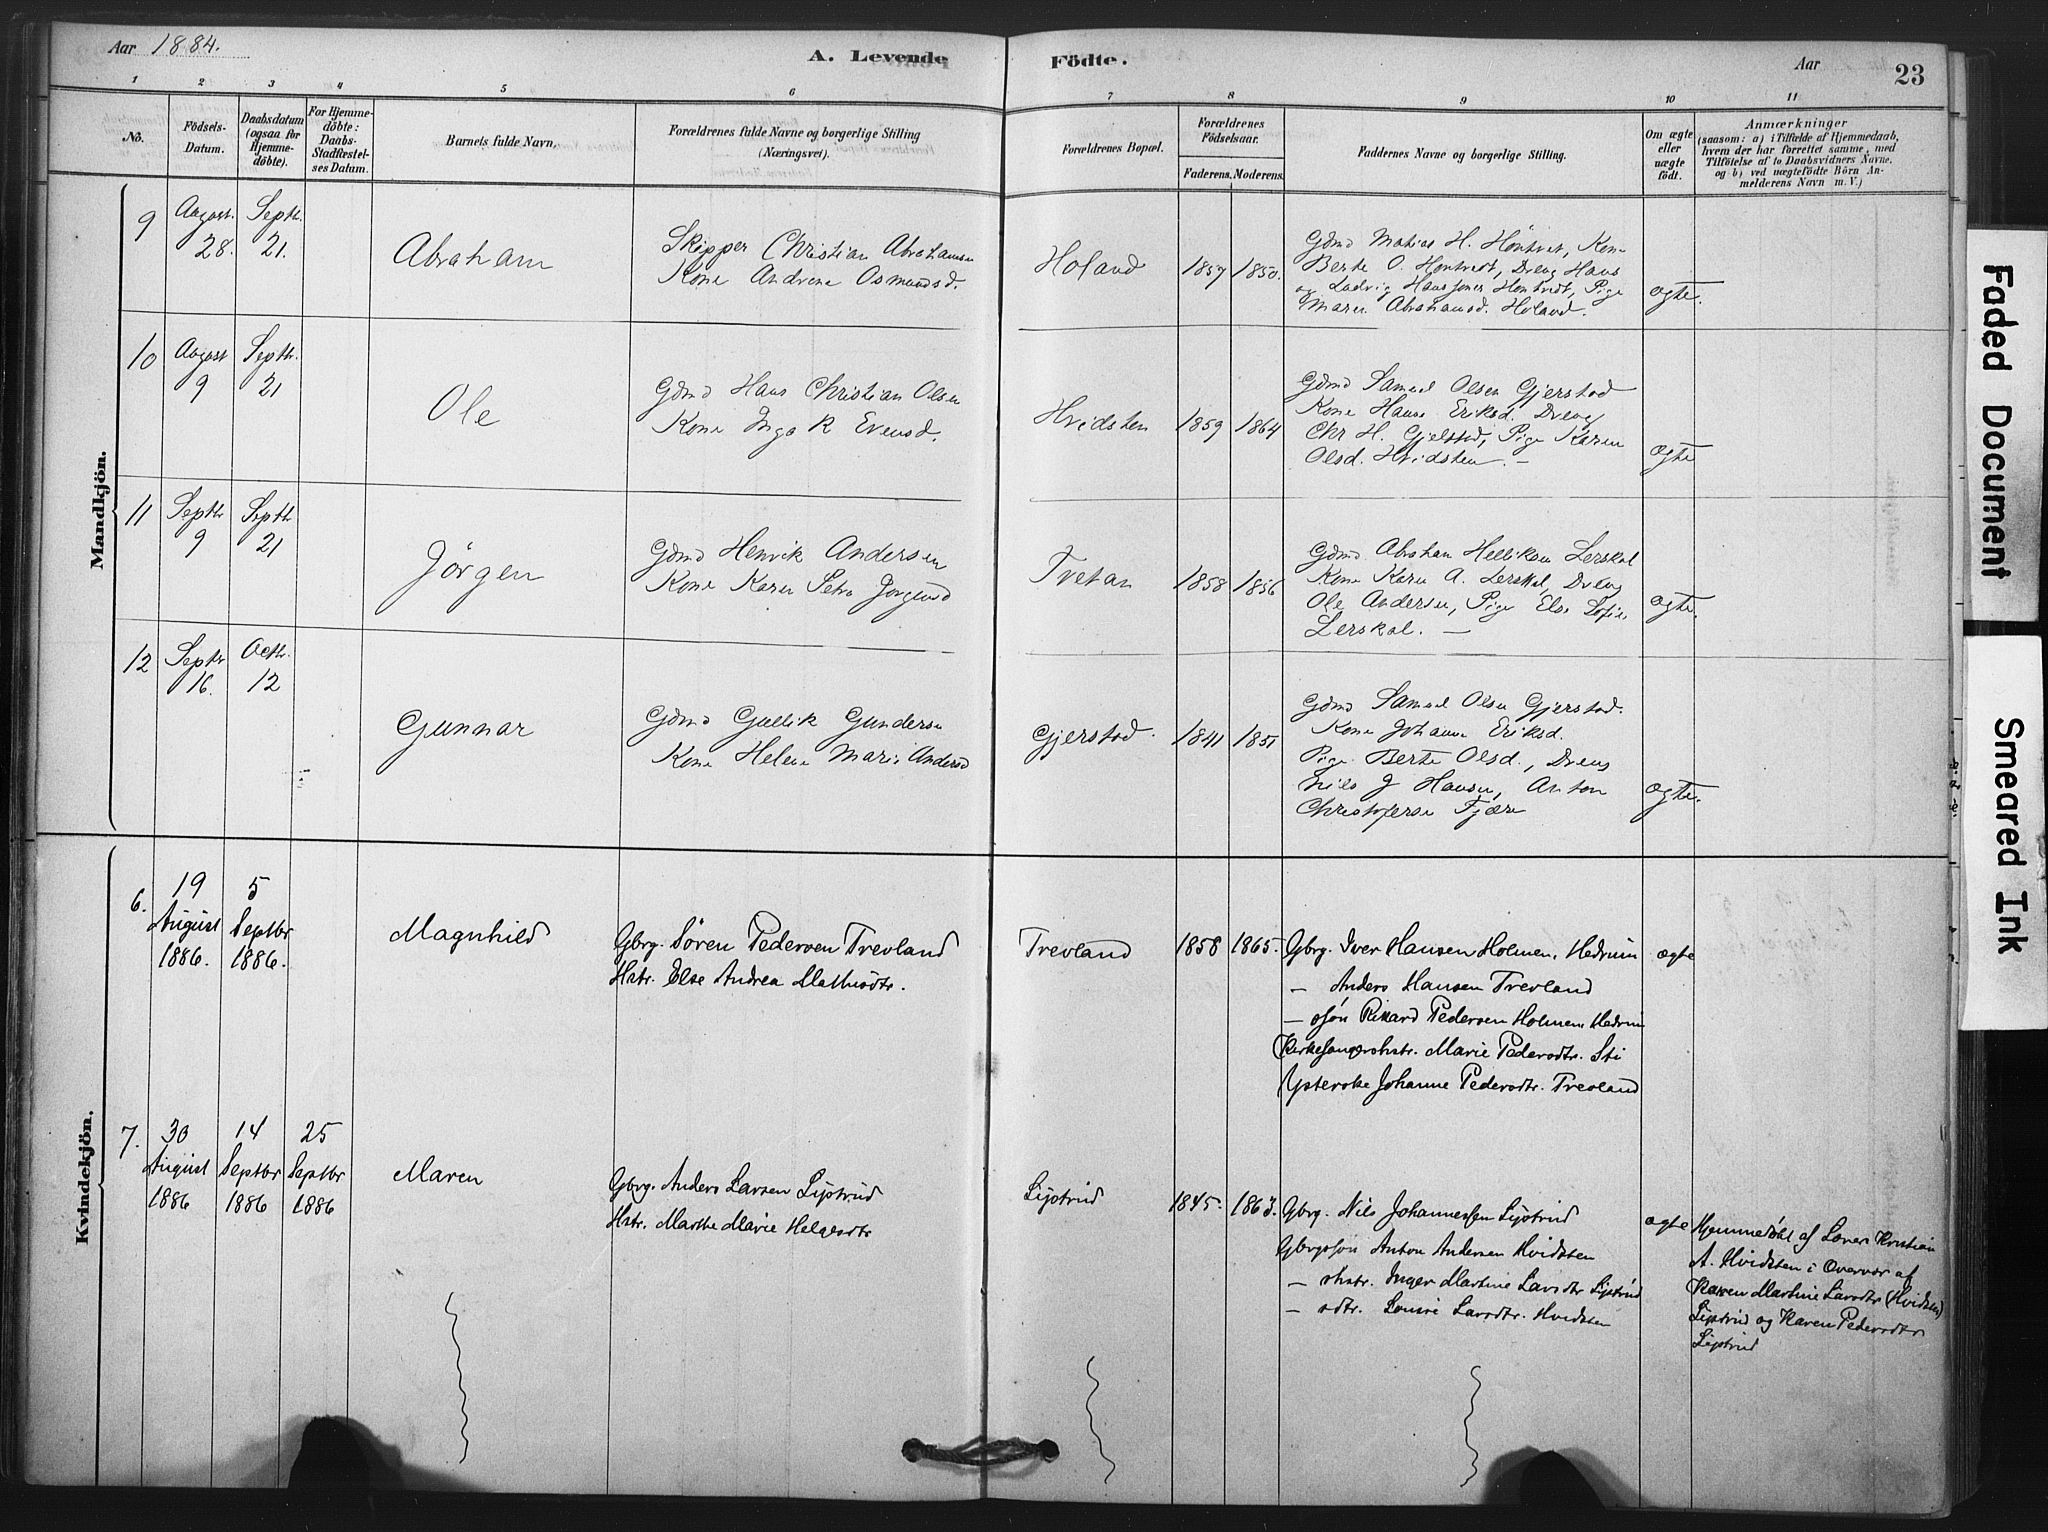 Aar 1884.
A. Levende Födte.
Aar
23
1 2 3 4 5 6 7 8 9 10 11
No.
Födsels-Datum.
Daabsdatum (ogsaa for Hjemme-döbte).
For Hjemme-döbte: Daabs-Stadfæstel-ses Datum.
Barnets fulde Navn.
Forældrenes fulde Navne og borgerlige Stilling
(Næringsvei).
Forældrenes Bopæl.
Forældrenes Födselsaar.
Faderens. Moderens.
Faddernes Navne og borgerlige Stilling.
Om ægte eller uægte födt.
Anmærkninger
(saasom: a) i Tilfælde af Hjemmedaab,
hvem der har forrettet samme, med
Tilföielse af to Daabsvidners Navne,
og b) ved uægtefödte Börn An-
melderens Navn m. V.)
Mandkjön.
9
August 28.
Septb. 21.
Abraham
Skipper Christian Abrahamsen
Kone Andrene Osmundsd.
Holand
1857 1850.
Gdmd Matias H. Hontvet, Kone
Berte O. Hontvedt, Dreng Hans
og Ludvig Hanssøner Hontvedt, Pige
Maren Abrahamsd. Holand.
ægte.
10
August 9
Septb. 21
Ole
Gdmd Hans Christian Olsen
Kone Inga K Evensd.
Hvidsten
1859 1864
Gdmd Samuel Olsen Gjerstad
Kone Hanne Eriksd. Dreng
Chr H. Gjelstad, Pige Karen
Olsd. Hvidsten. –
ægte
11
Septb 9
Septb 21
Jörgen
Gdmd Henrik Andersen
Kone Karen Petra Jørgensd
Tvetan
1858 1856
Gdmd Abraham Helliksen Lerskal
Kone Karen A. Lerskal, Dreng
Ole Andersen, Pige Else Sofie
Lerskal. —
ægte.
12
Septb 16.
Octb. 12
Gunnar
Gdmd Gullik Gundersen
Kone Helene Marie Andersd
Gjerstad.
1841 1851
Gdmd Samuel Olsen Gjerstad.
Kone Johanne Eriksd.
Pige Berte Olsd., Dreng
Nils J Hansen, Anton
Christofersen Fjære
ægte.
Kvindekjön.
6.
19 August 1886.
5 Septbr 1886.
Magnhild
Gbrg. Sören Pedersen Trevland
Hstr. Else Andrea Mathisdtr.
Trevland
1858 1865.
Gbrg. Iver Hansen Holmen, Hedrum
— Anders Hansen Trevland
— søn Rikard Pedersen Holmen Hedrum
Kirkesangershstr. Marie Pedersdtr. Sti
Ysterske Johanne Pedersdtr. Trevland
ægte
7.
30 August 1886
14 Septbr 1886
25 Septbr 1886
Maren
Gbrg. Anders Larsen Ljøstrud
Hstr. Marthe Marie Helgesdtr
Ljøstrud
1845. 1863.
Gbrg. Nils Johannessen Ljøstrud
Gbrgssøn Anton Andersen Hvidsten
— shstr. Inger Martine Larsdtr Ljøstrud
— sdtr. Louise Larsdtr. Hvidsten
ægte
Hjemmedøbt af Lærer Kristian
A. Hvidsten i Overvær af
Karen Martine Larsdtr (Hvidsten)
Ljøstrud og Karen Pedersdtr
Ljøstrud
Faded Document
Smeared Ink